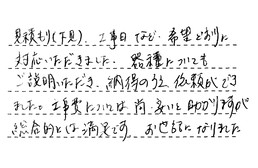 見積もり(下見)、工事日など、希望どおりに
対応いただきました。器種についても
ご説明いただき、納得のうえ依頼ができ
ました。工事費については尚、安いと助かりますが
総合的には満足です。お世話になりました